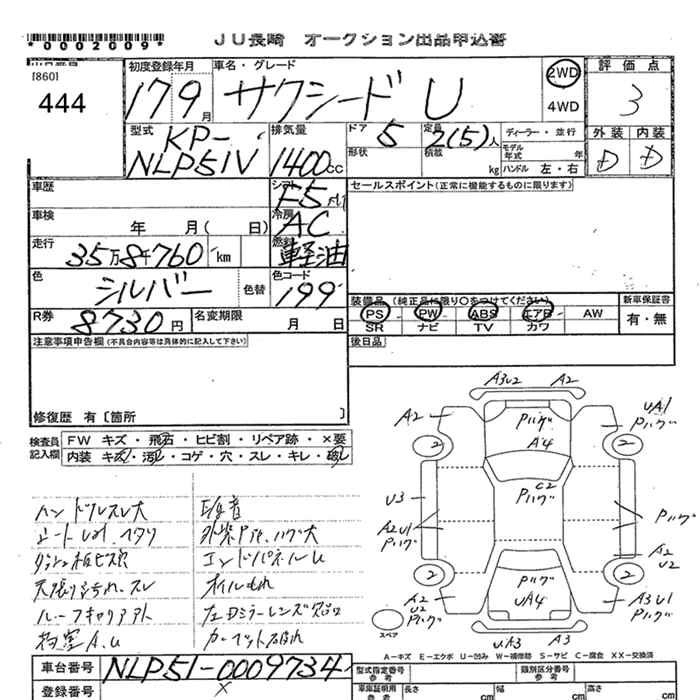 *0002009*
JU長崎 オークション出品申込書
[860]
444
初度登録年月
17年9月
車名・グレード
サクシード U
2WD
4WD
評価点
3
外装 内装
D D
型式
KP-
NLP51V
排気量
1400cc
ドア 5
形状
定員 2(5)人
積載 kg
ディーラー・並行
モデル年式 年
ハンドル 左・右
車歴
シフト
F5
セールスポイント(正常に機能するものに限ります)
車検 年 月( 日)
冷房
AC
走行
35万8千760 km
燃料
軽油
色
シルバー
色替
色コード
199
R券
8730円
名変期限 月 日
装備品 (純正品に限り○をつけてください)
PS PW ABS エアB AW
SR ナビ TV カワ
新車保証書
有・無
注意事項申告欄(不具合内容等は具体的に記入して下さい)
後日品
修復歴 有〔箇所 〕
検査員
記入欄
FW キズ・飛石・ヒビ割・リペア跡・×要
内装 キズ・汚レ・コゲ・穴・スレ・キレ・破レ
ハンドルスレ大
天張り汚れ、スレ
ルーフキャリア外
荷室A、U
エンドパネルU
オイルもれ
A3U2 A2
A2 Pハゲ UA1
Pハゲ
A4
2 2
C2
Pハゲ
U3
A2U1
Pハゲ
Pハゲ
A2
U2
2 2
Pハゲ
UA4
A2
U2
Pハゲ
A3U1
Pハゲ
UA3 A3
スペア
A-キズ E-エクボ U-凹み W-補修跡 S-サビ C-腐食 XX-交換済
車台番号
NLP51-0009734
登録番号
型式指定番号
参考
類別区分番号
参考
車庫証明用
参考
長さ cm
幅 cm
高さ cm